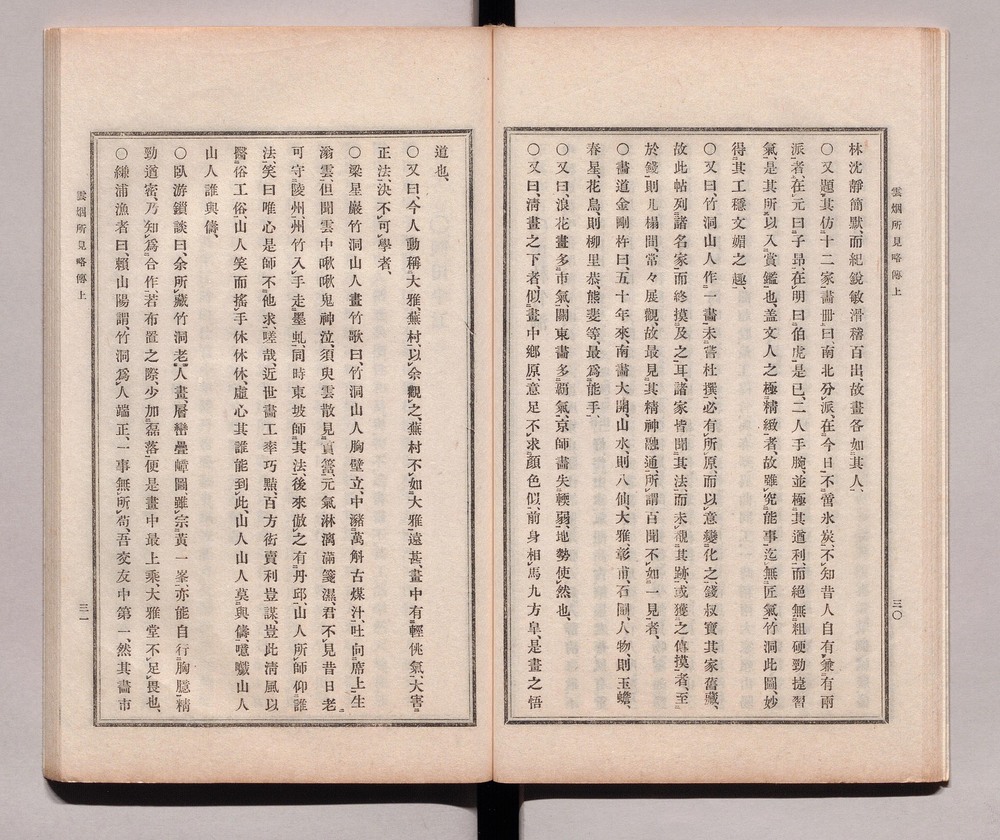 雲烟所見略傳上
三〇
林沈靜簡默、而紀銳敏滑稽百出、故畫各如其人、
〇又題其仿十二家畫冊曰、南北分派、在今日不啻氷炭、不知昔人自有兼有兩
派者、在元曰子昂、在明曰伯虎是已、二人手腕、並極其道利、而絕無粗硬勁捷習
氣、是其所以入賞鑑也、盖文人之極精緻者、故雖究能事、迄無匠氣、竹洞此圖、妙
得其工穩文媚之趣、
〇又曰、竹洞山人作一畫、未嘗杜撰、必有所原、而以意變化之、錢叔寶其家舊藏、
故此帖列諸名家、而終摸及之耳、諸家皆聞其法、而未覩其跡、或獲之傳摸者、至
於錢、則几榻間、常々展觀、故最見其精神融通、所謂百聞不如一見者、
〇畫道金剛杵曰、五十年來、南畫大開、山水、則八仙、大雅、彰甫、石圃、人物、則玉蟾、
春星、花鳥、則柳里恭、熊斐等、最爲能手、
〇又曰、浪花畫多市氣、關東畫多覇氣、京師畫失輭弱、地勢使然也、
〇又曰、淸畫之下者、似畫中鄕原、意足不求顏色似、前身相馬九方皐、是畫之悟
道也、
〇又曰、今人動稱大雅蕪村、以余觀之、蕪村不如大雅遠甚、畫中有輕佻氣、大害
正法、決不可學者、
〇梁星巖竹洞山人畫竹歌曰、竹洞山人胸壁立、中瀦萬斛古煤汁、吐向席上生
滃雲、但聞雲中啾啾鬼神泣、須臾雲散見篔簹、元氣淋漓滿箋濕、君不見昔日老
可守陵州、州竹入手走墨虬、同時東坡師其法、後來倣之有丹邱、山人所師仰誰
法、笑曰唯心是師不他求、嗟哉近世畫工率巧黠、百方衒賣利豈謀、豈此淸風以
醫俗工俗、山人笑而搖手休休休、虛心其誰能到此、山人山人莫與儔、噫嚱山人
山人誰與儔、
〇臥游鎖談曰、余所藏竹洞老人畫、層巒疊嶂圖、雖宗黃一峯、亦能自行胸臆、精
勁道密、乃知爲合作、若布置之際、少加磊落、便是畫中最上乘、大雅堂不足畏也、
〇練浦漁者曰、賴山陽謂、竹洞爲人端正、一事無所苟、吾交友中第一、然其畫市
雲烟所見略傳上
三一